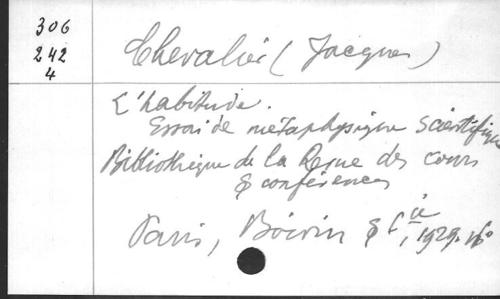 306
242
4
Chevalier (Jacques)
L'habitude.
Essai de métaphysique scientifique
Bibliothèque de la Revue des cours
& conférences
Paris, Boivin & Cie, 1929. 16°